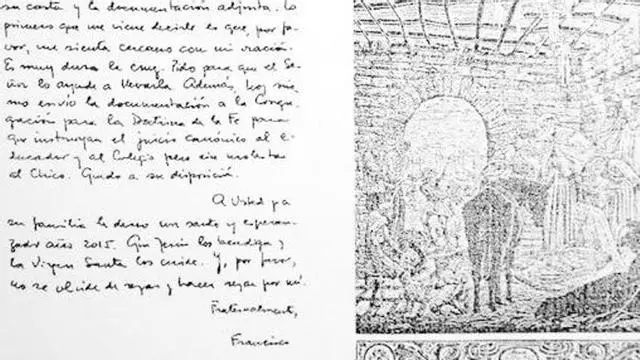 su carta y la documentación adjunta. Lo
primero que me viene decirle es que, por fa-
vor, me sienta cercano con mi oración.
Es muy dura la cruz. Pido para que el Se-
ñor lo ayude a llevarla. Además, hoy mis-
mo envío la documentación a la Congre-
gación para la Doctrina de la Fe para
que instruyan el juicio canónico al e-
ducador y al Colegio pero sin molestar
al Chico. Quedo a su disposición.
A Usted y a
su familia le deseo un santo y esperan-
zado año 2015. Que Jesús los bendiga y
la Virgen Santa los cuide. Y, por favor,
no se olvide de rezar y hacer rezar por mí.
Fraternalmente,
Francisco